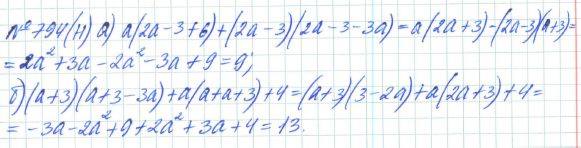 № 794 (н) а) a(2a-3+6)+(2a-3)(2a-3-3a)=a(2a+3)-(2a-3)(a+3)=
=2a²+3a-2a²-3a+9=9;
б)(a+3)(a+3-3a)+a(a+a+3)+4=(a+3)(3-2a)+a(2a+3)+4=
=-3a-2a²+9+2a²+3a+4=13.